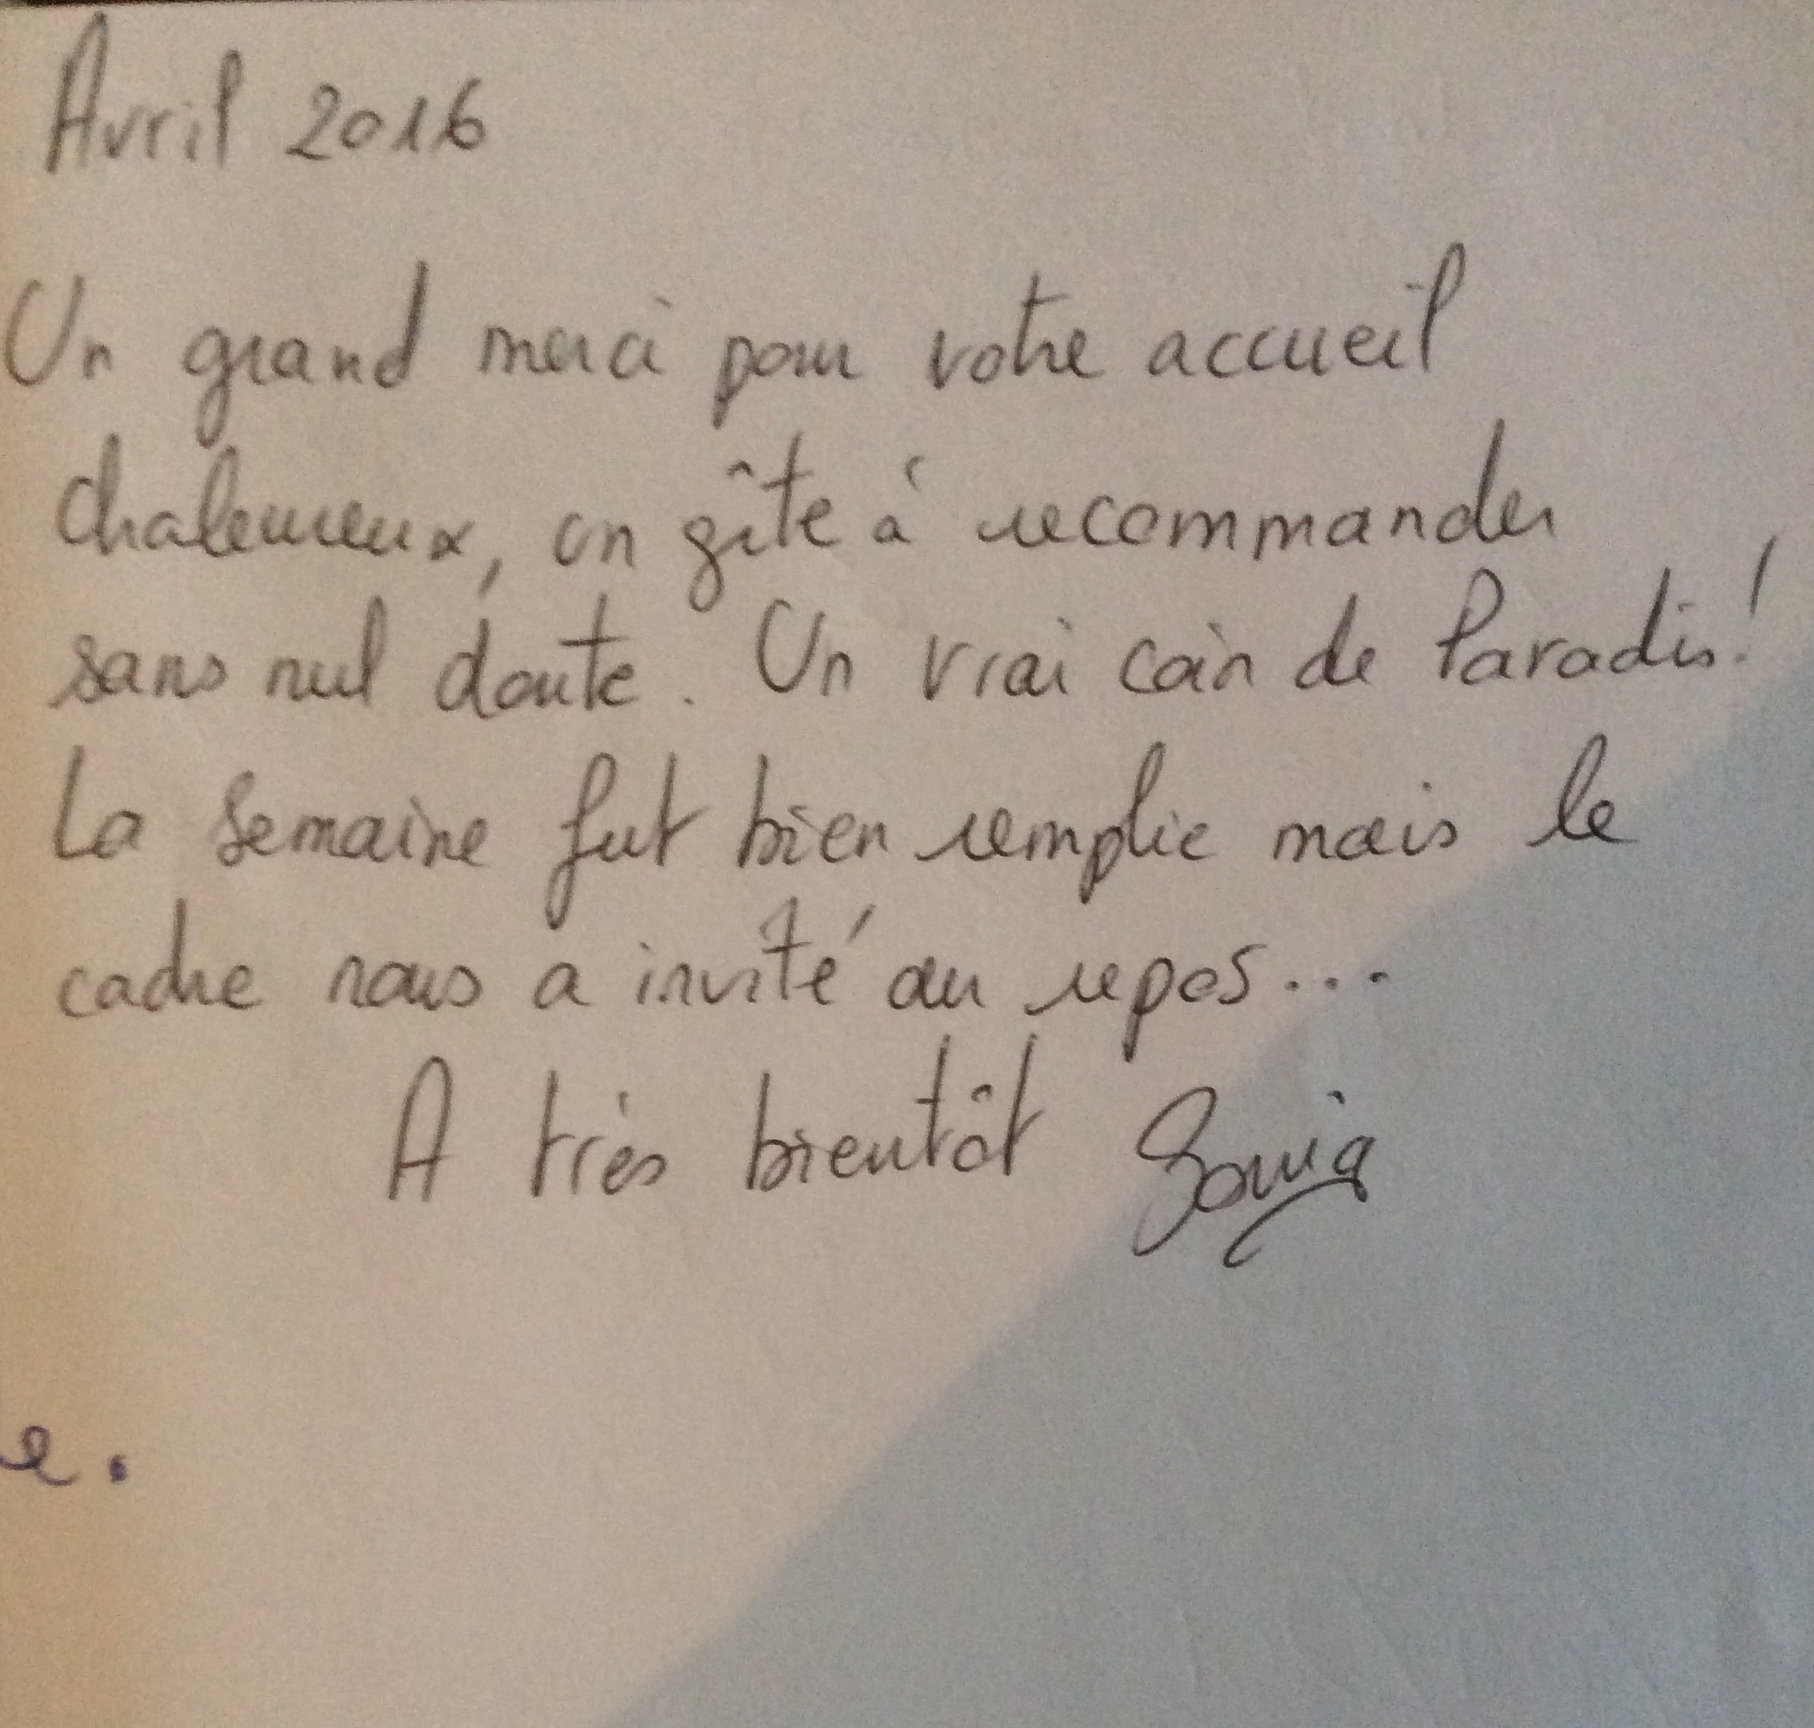 Avril 2016
Un grand merci pour votre accueil
chaleureux, un gîte à recommander
sans nul doute. Un vrai coin de Paradis!
La semaine fut bien remplie mais le
cadre nous a invité au repos...
A très bientôt Sonia
e.